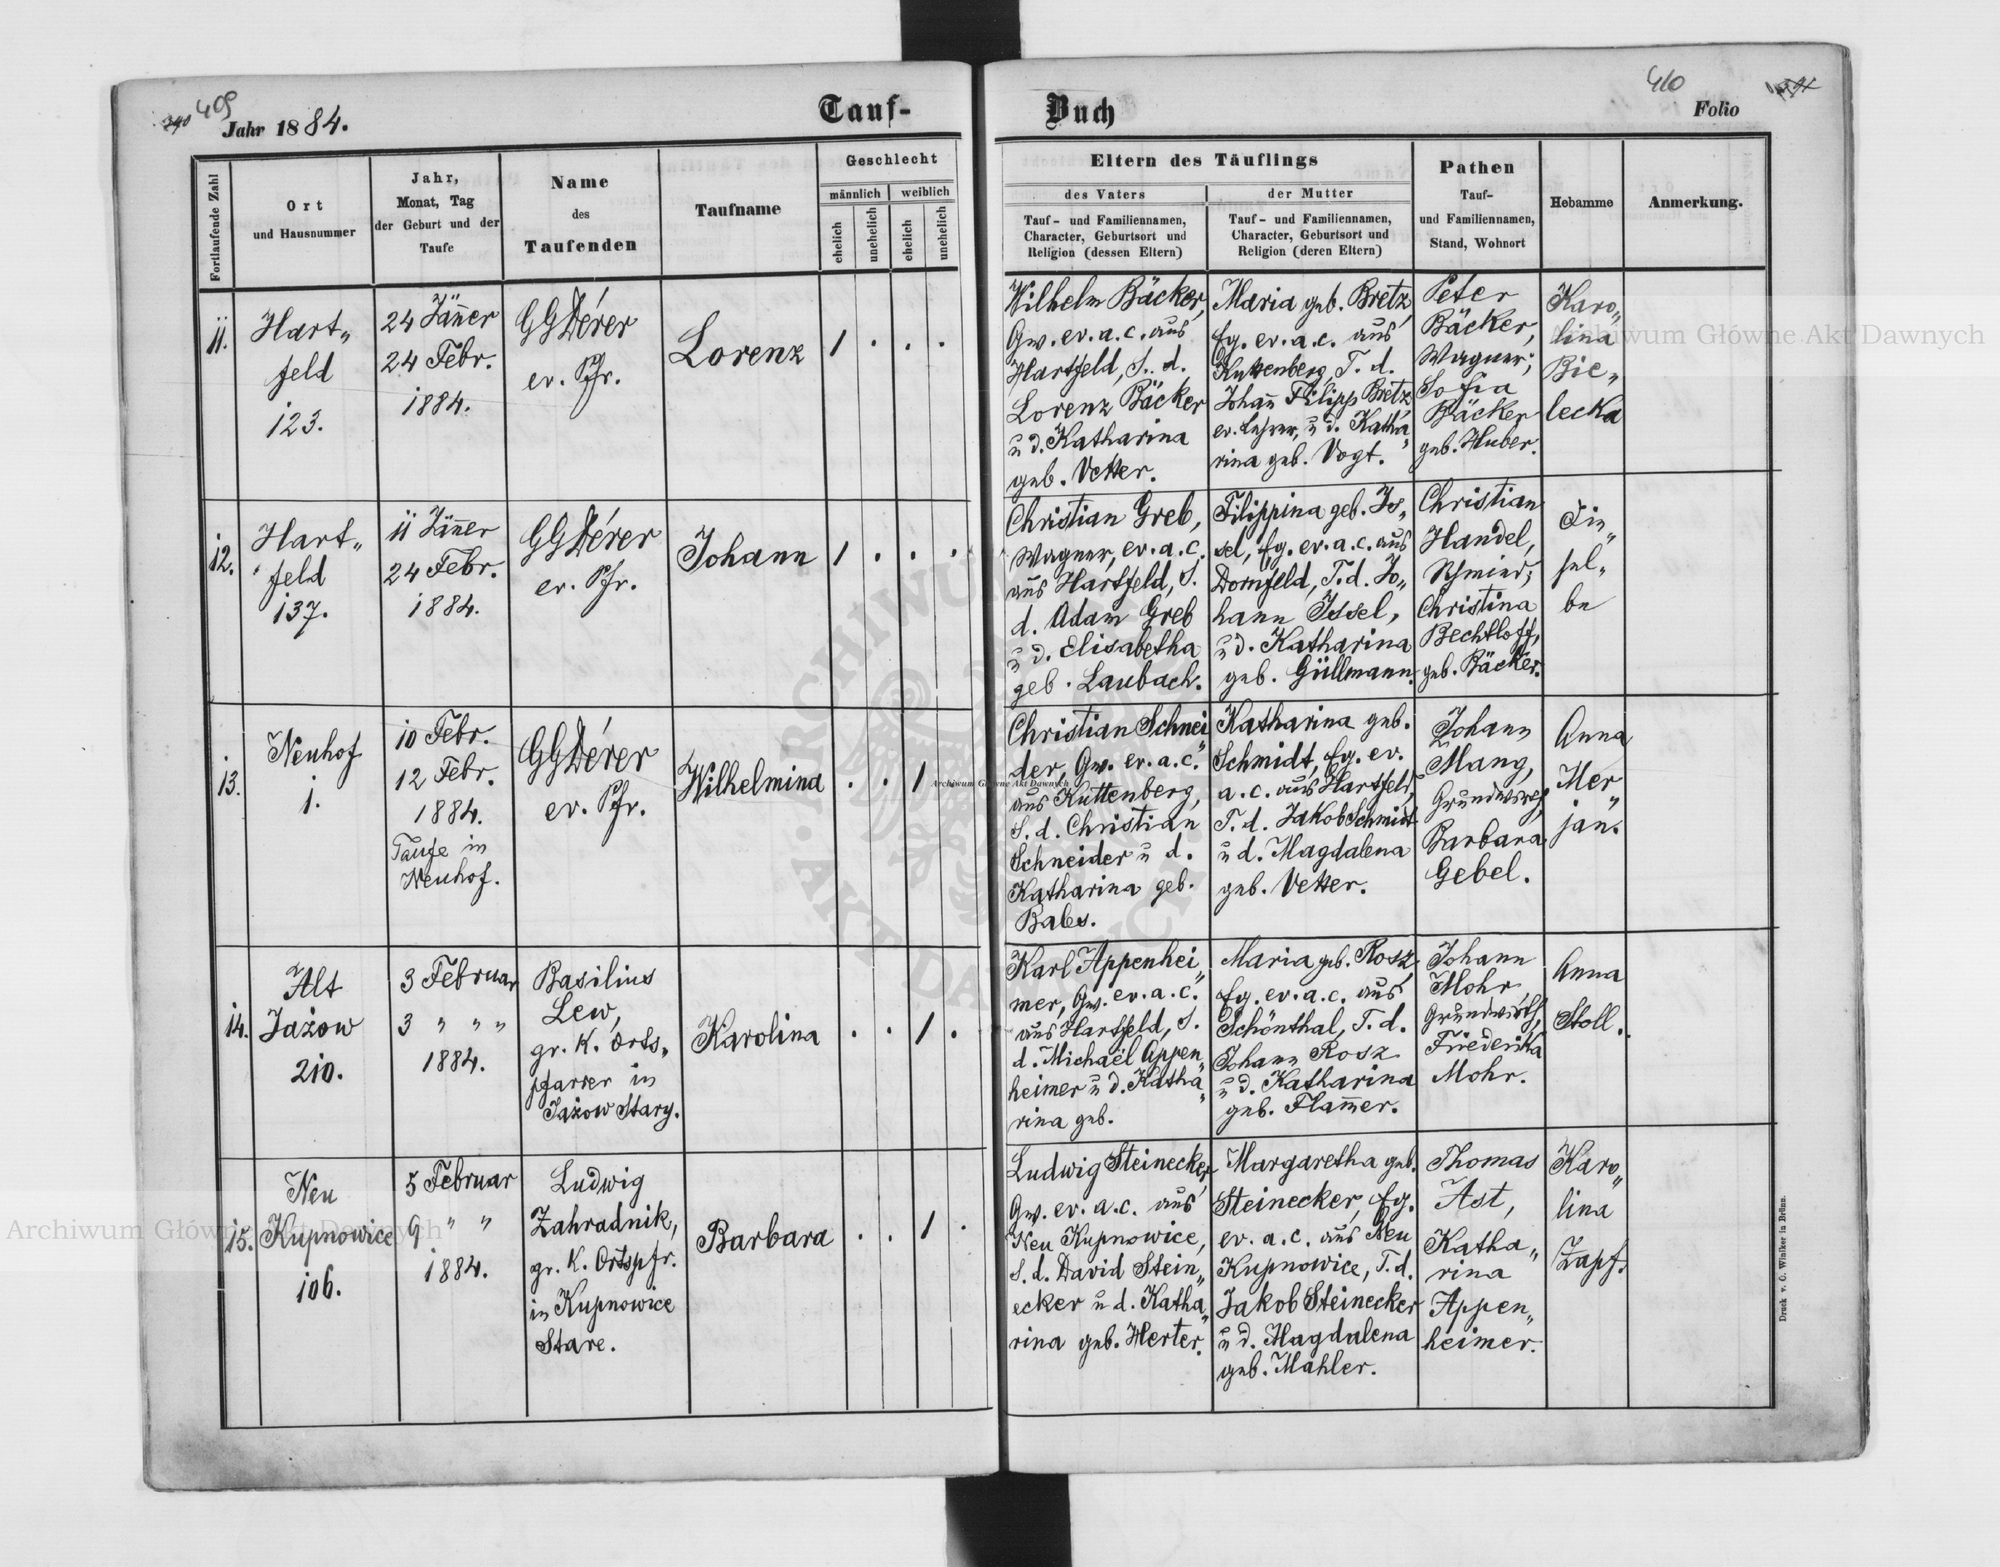 409
Jahr 1884.
Tauf-
Fortlaufende Zahl
Ort
und Hausnummer
Jahr,
Monat, Tag
der Geburt und der
Taufe
Name
des
Taufenden
Taufname
Geschlecht
männlich
weiblich
ehelich
unehelich
ehelich
unehelich
11.
Hart„
feld
123.
24 Jäner
24 Febr.
1884.
GGDérer
ev. Pfr.
Lorenz
1 . . .
12.
Hart„
feld
137.
11 Jäner
24 Febr.
1884.
GGDérer
ev. Pfr.
Johann
1 . . .
13.
Neuhof
1.
10 Febr.
12 Febr.
1884.
Taufe in
Neuhof.
GGDérer
ev. Pfr.
Wilhelmina
. . 1 .
14.
Alt
Jażow
210.
3 Februar
3 „ „ „
1884.
Basilius
Lew,
gr. K. Orts„
pfarrer in
Jażow Stary.
Karolina
. . 1 .
15.
Neu
Kupnowice
106.
5 Februar
9 „ „
1884.
Ludwig
Zahradnik,
gr. K. Ortspfr.
in Kupnowice
Stare.
Barbara
. . 1 .
Buch
410
Folio
Eltern des Täuflings
des Vaters
Tauf- und Familiennamen,
Character, Geburtsort und
Religion (dessen Eltern)
der Mutter
Tauf- und Familiennamen,
Character, Geburtsort und
Religion (deren Eltern)
Pathen
Tauf-
und Familiennamen,
Stand, Wohnort
Hebamme
Anmerkung.
Wilhelm Bäcker,
Gw. ev. a. c. aus
Hartfeld, S. d.
Lorenz Bäcker
u d. Katharina
geb. Vetter.
Maria geb. Bretz,
Eg. ev. a. c. aus
Kuttenberg, T. d.
Johan Filipp Bretz
ev. Lehrer, u d. Katha„
rina geb. Vogt.
Peter
Bäcker,
Wagner;
Sofia
Bäcker
geb. Huber.
Karo„
lina
Bie„
lecka
Christian Greb,
Wagner, ev. a. c.
aus Hartfeld, S.
d. Adam Greb
u d. Elisabetha
geb. Laubach.
Filippina geb. Is„
sel, Eg. ev. a. c. aus
Dornfeld, T. d. Jo„
hann Issel,
u d. Katharina
geb. Güllmann.
Christian
Handel,
Schmied;
Christina
Bechtloff,
geb. Bäcker.
Die„
sel„
be
Christian Schnei„
der, Gw. ev. a. c.
aus Kuttenberg,
S. d. Christian
Schneider u d.
Katharina geb.
Bales.
Katharina geb.
Schmidt, Eg. ev.
a. c. aus Hartfeld,
T. d. Jakob Schmidt
u d. Magdalena
geb. Vetter.
Johann
Mang,
Grundwirth,
Barbara
Gebel.
Anna
Mer„
jan.
Karl Appenhei„
mer, Gw. ev. a. c.
aus Hartfeld, S.
d. Michaël Appen„
heimer u d. Katha„
rina geb.
Maria geb. Rosz,
Eg. ev. a. c. aus
Schönthal, T. d.
Johann Rosz
u d. Katharina
geb. Flamer.
Johann
Mohr,
Grundwirth,
Friederika
Mohr.
Anna
Stoll.
Ludwig Steinecker,
Gw. ev. a. c. aus
Neu Kupnowice,
S. d. David Stein„
ecker u d. Katha„
rina geb. Herter.
Margaretha geb.
Steinecker, Eg.
ev. a. c. aus Neu
Kupnowice, T. d.
Jakob Steinecker
u d. Magdalena
geb. Mahler.
Thomas
Ast,
Katha„
rina
Appen„
heimer.
Karo„
lina
Zapf.
Druck v. C. Winiker in Brünn.
Archiwum Główne Akt Dawnych
Archiwum Główne Akt Dawnych
Archiwum Główne Akt Dawnych
ARCHIWUM
AKT DAWNYCH